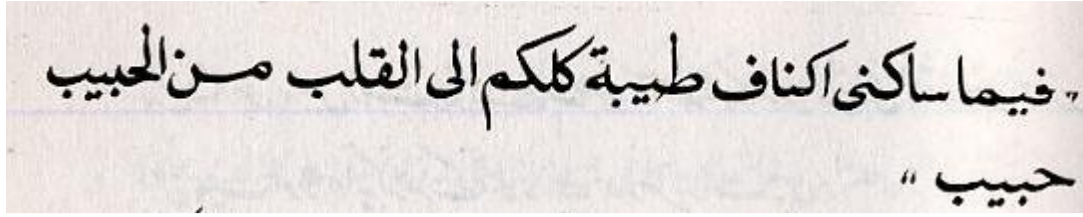 „ فيما ساكنى اكناف طيبة كلكم الى القلب من الحبيب
حبيب "